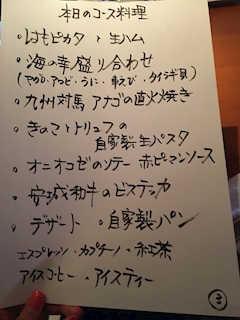 本日のコース料理
・はもピカタと生ハム
・海の幸盛り合わせ
(マグロ・アワビ・うに・車えび・タイラギ貝)
・九州対馬アナゴの直火焼き
・きのことトリュフの
自家製生パスタ
・オニオコゼのソテー ホピマンソース
・安城和牛のビステッカ
・デザート ・自家製パン
エスプレッソ・カプチーノ・紅茶
アイスコーヒー・アイスティー
③